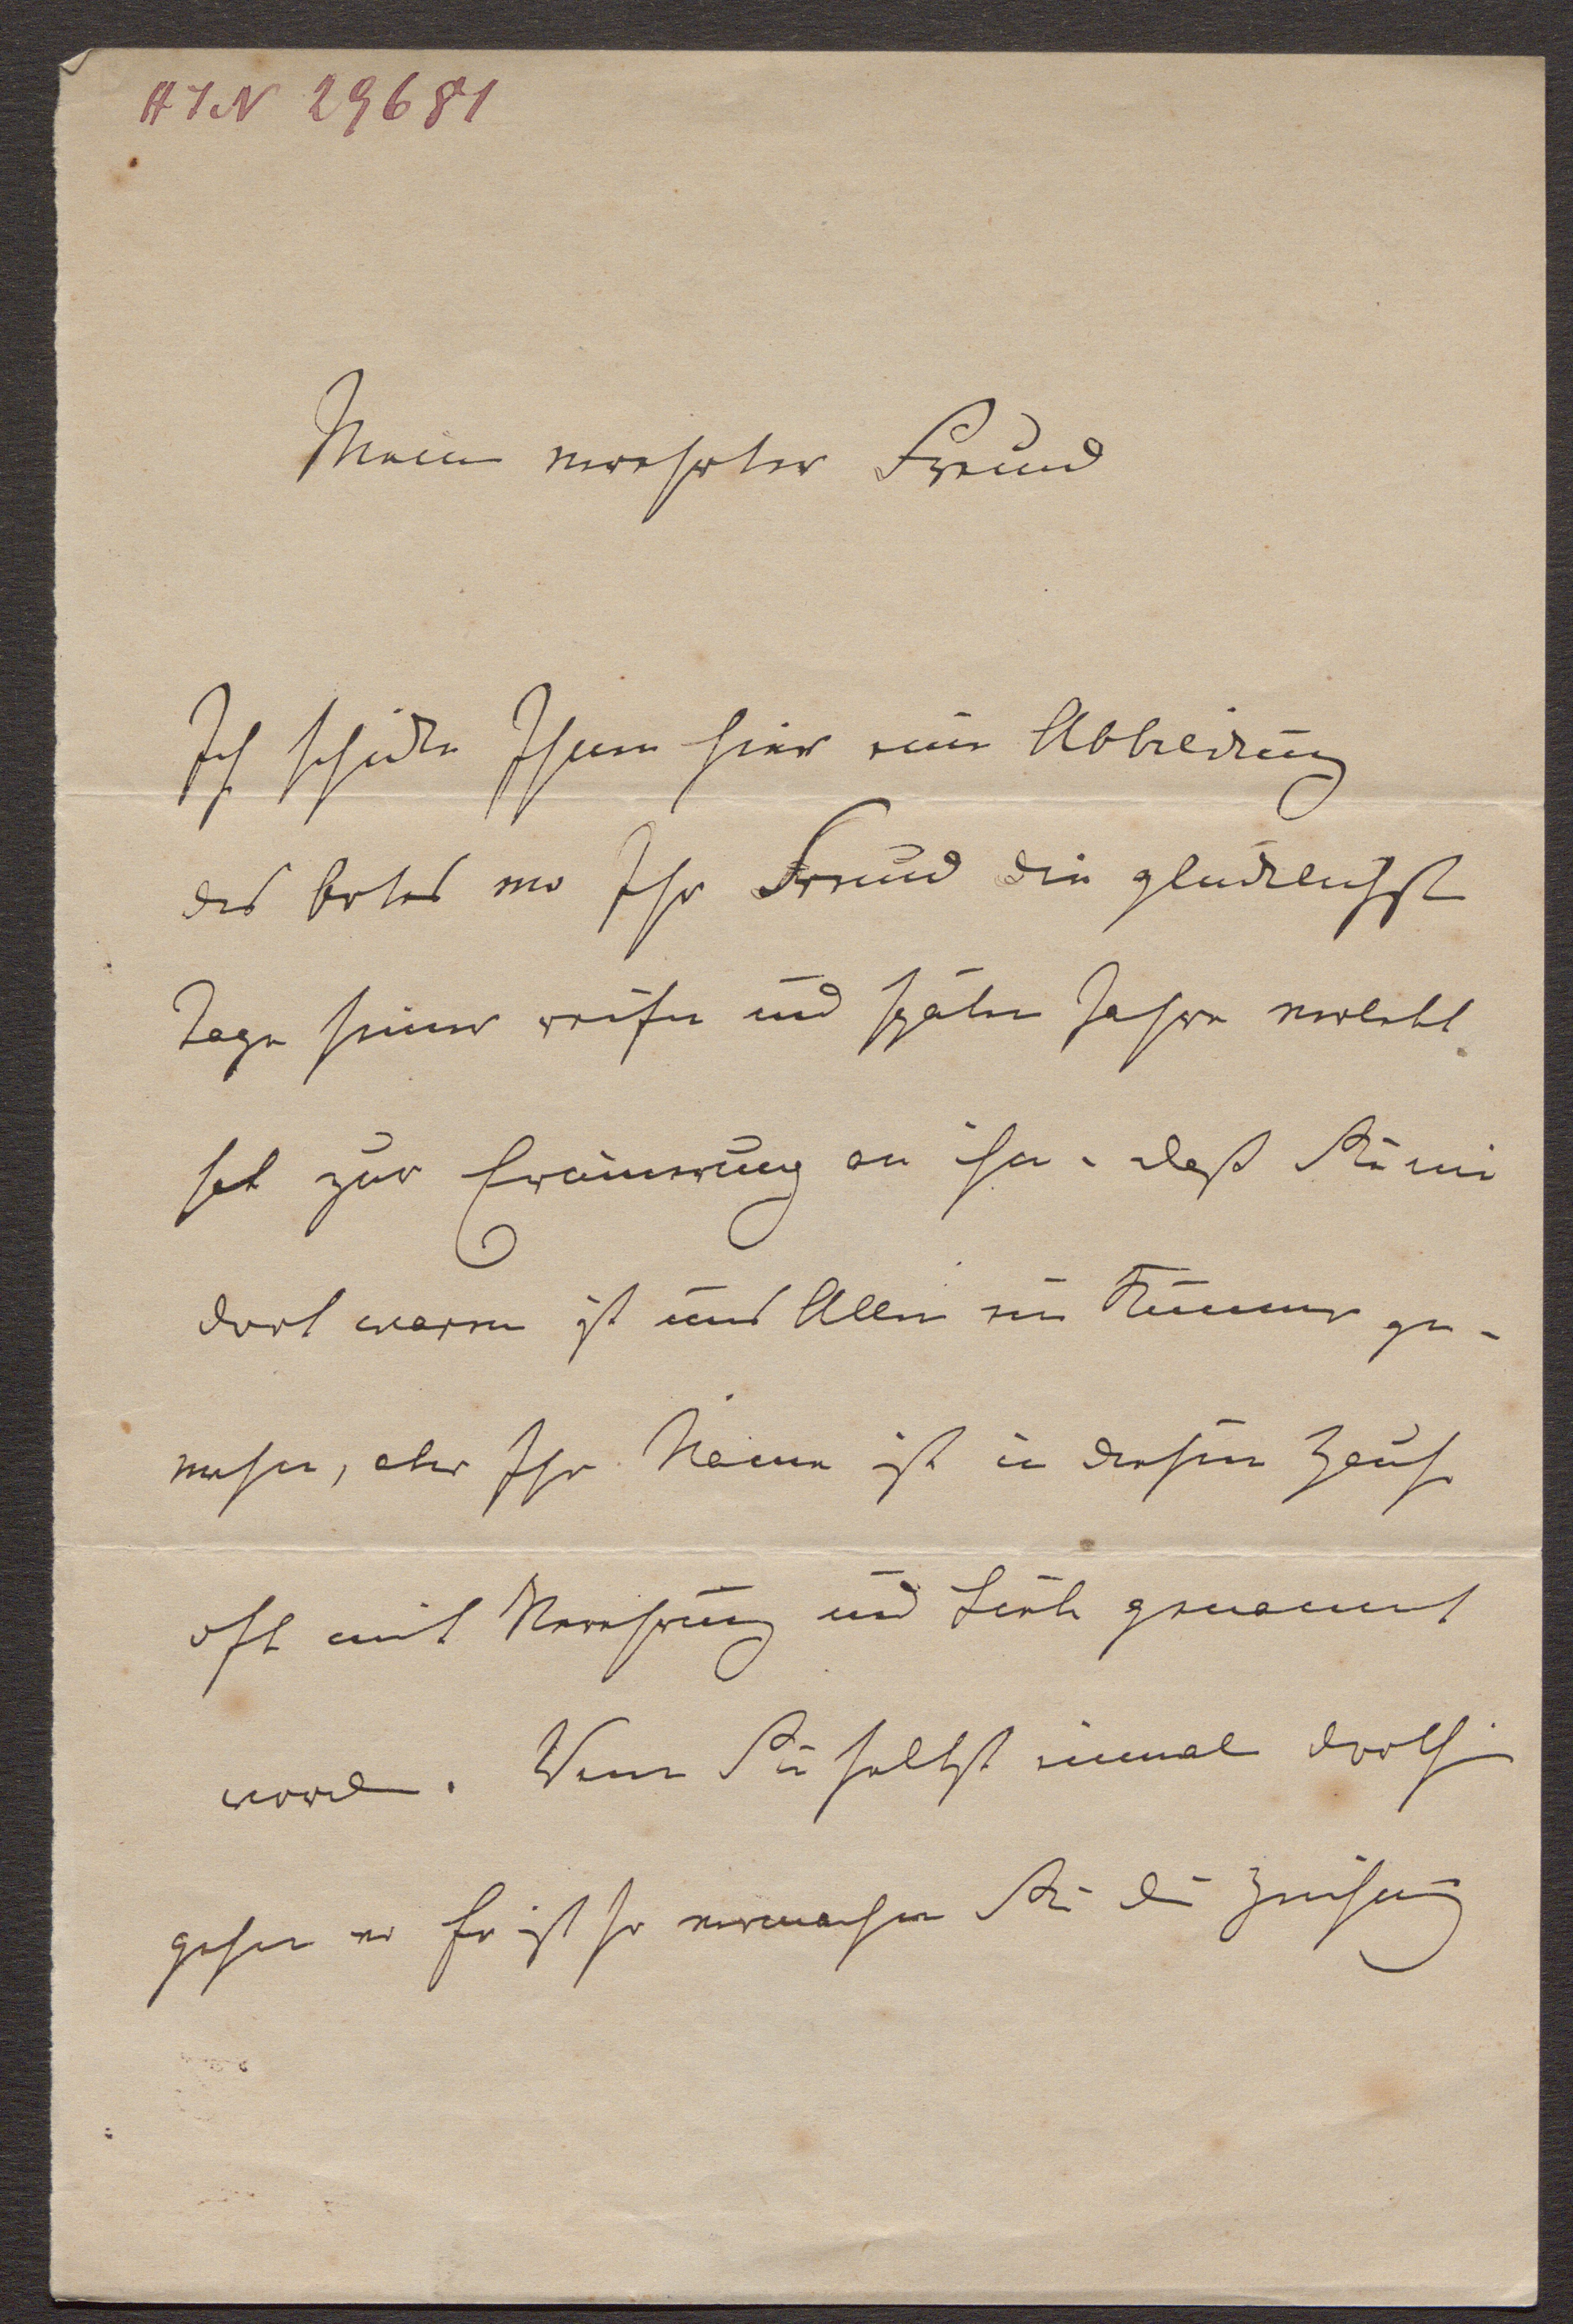 HIN 29681
Mein verehrter Freund
Ich schicke Ihnen hier eine Abbildung
des Ortes wo Ihr Freund die glücklichsten
Tage seiner reifen und späten Jahre verlebt
hat zur Erinnerung an ihn. daß Sie nie
dort waren ist uns Allen ein Kummer ge-
wesen, aber Ihr Name ist in diesem Hause
oft mit Verehrung und Liebe genannt
worden. Wenn Sie selbst einmal dorthin
gehen wo Er ist so vermachen Sie die Zeichnung